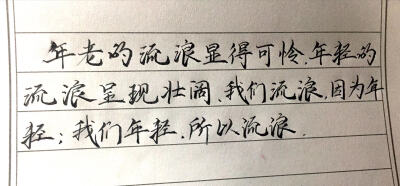 年老的流浪显得可怜.年轻的
流浪呈现壮阔、我们流浪,因为年
轻;我们年轻.所以流浪.